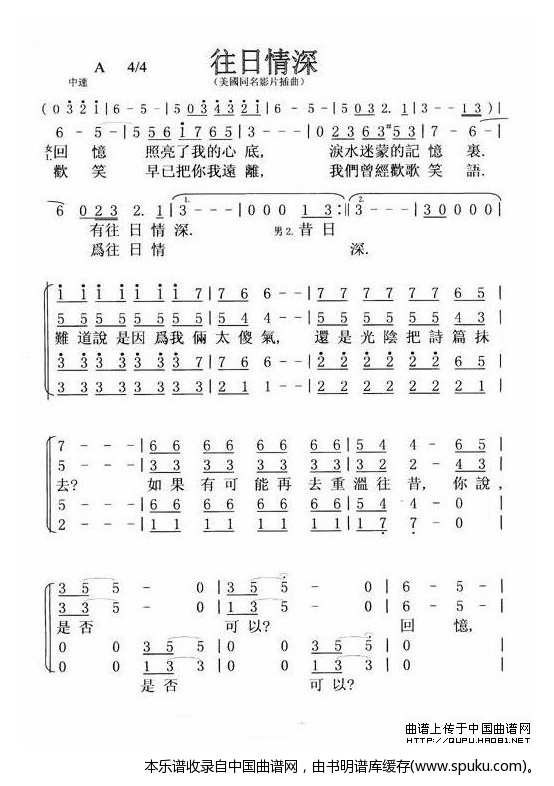 往日情深
中速 A 4/4 （美國同名影片插曲）
(0 3 2 1 | 6 - 5 - | 5 0 4 3 2 1 | 6 - 5 - | 5 0 5 2. 1 | 3 - - - | 3 - - 1 3) |
6 - 5 - | 5 5 6 1 7 6 5 | 6 - 5 - | 0 2 3 6 3 #5 3 |
女1. 回 憶 照亮了我的心底, 淚水迷蒙的記憶裏.
歡 笑 早已把你我遠離, 我們曾經歡歌笑語.
6 0 2 3 2. 1 | 1. 3 - - - | 0 0 0 1 3 :‖ 2. 3 - - - | 3 0 0 0 0 |
有往日情深. 男2. 昔日
爲往日情 深.
1 1 1 1 1 1 1 7 | 7 6 6 - | 7 7 7 7 7 7 6 5 |
5 5 5 5 5 5 5 5 | 5 4 4 - | 5 5 5 5 5 5 4 3 |
難道說是因爲我倆太傻氣, 還是光陰把詩篇抹
3 3 3 3 3 3 3 2 | 2 1 1 - | 2 2 2 2 2 2 2 2 |
7 - - - | 6 6 6 6 6 6 6 6 | 5 4 4 - 6 5 |
5 - - - | 3 3 3 3 3 3 3 3 | 2 2 - 4 3 |
去? 如果有可能再去重溫往昔, 你說,
5 - - - | 6 6 6 6 6 6 6 6 | 5 4 4 - 0 |
2 - - - | 1 1 1 1 1 1 1 1 | 1 - 0 |
3 5 5 - 0 | 3 5 5 - 0 | 6 - 5 - |
3 3 5 - 0 | 1 3 5 - 0 | 6 - 5 - |
是否 可以? 回 憶,
0 0 3 5 5 | 0 0 3 5 5 | 0 0 0 0 |
0 0 1 3 3 | 0 0 1 3 3 | 0 0 0 0 |
是否 可以?
曲谱上传于中国曲谱网
HTTP://QUPU.HAO81.NET
本乐谱收录自中国曲谱网，由书明谱库缓存(www.spuku.com)。